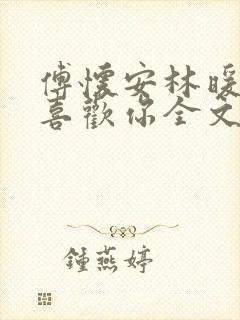 傅懷安林暖
喜歡你全文
鍾燕婷